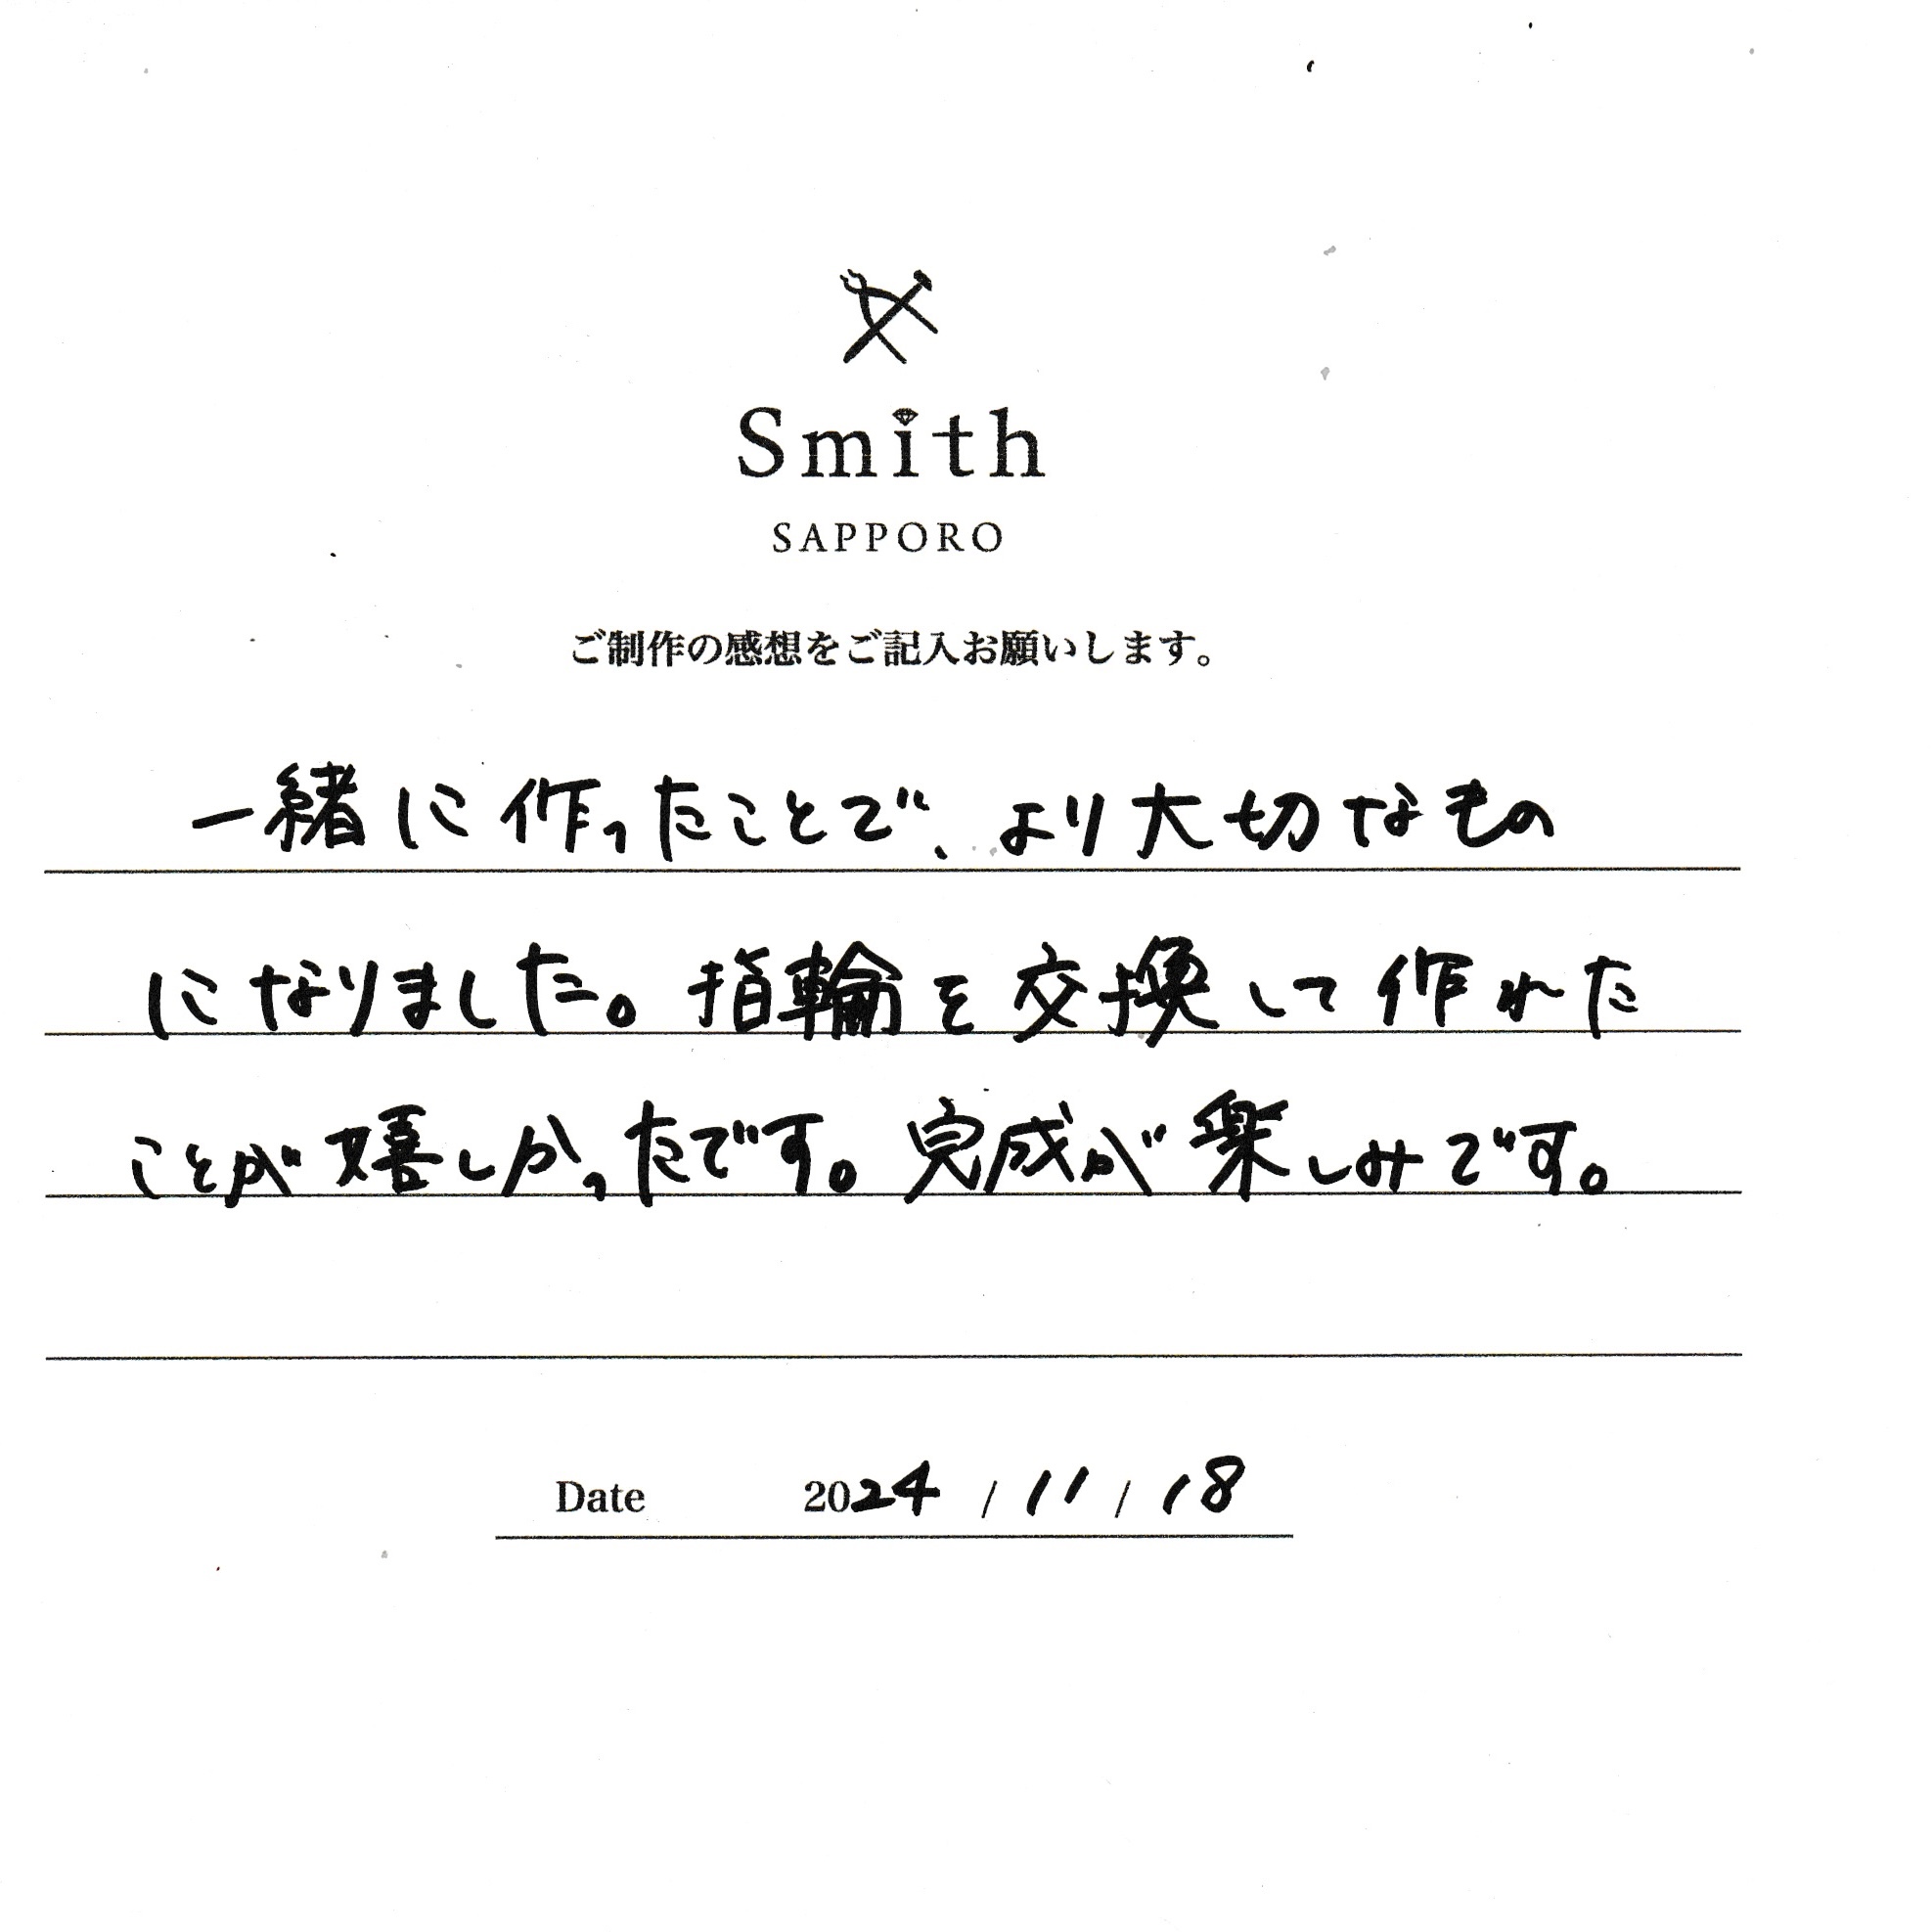 Smith
SAPPORO
ご制作の感想をご記入お願いします。
一緒に作ったことで、より大切なもの
になりました。指輪を交換して作れた
ことが嬉しかったです。完成が楽しみです。
Date 2024 / 11 / 18